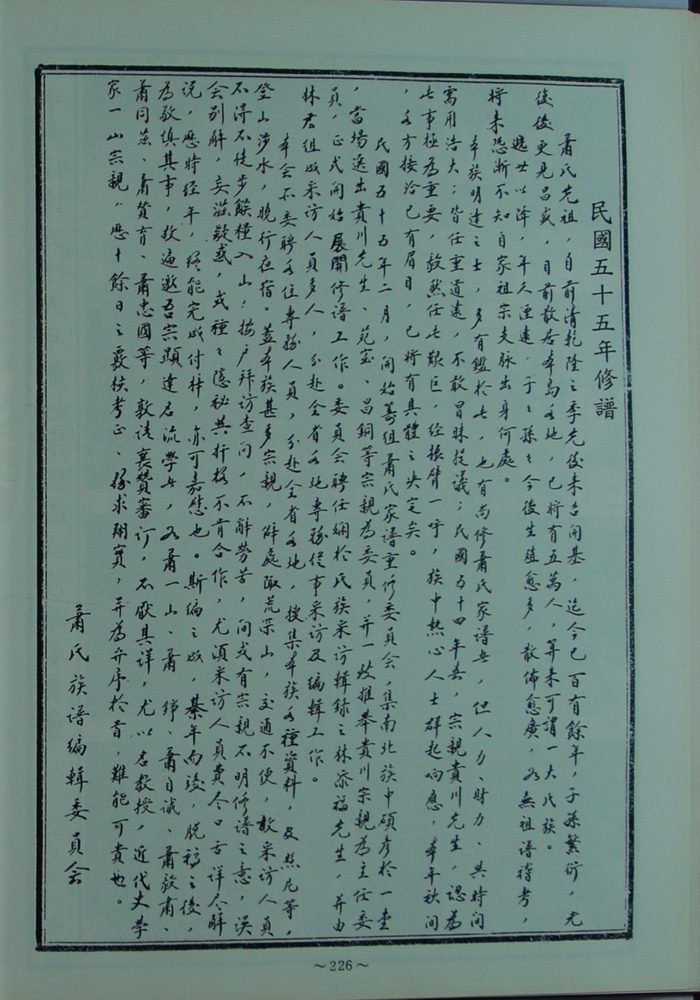 民國五十五年修譜
蕭氏先祖，自前清乾隆之季先後來台開基，迄今已百有餘年，子孫繁衍，尤
後後更見昌盛，目前散居本島各地，已將有五萬人，算來可謂一大氏族。
遞世以降，年久湮遠，子子孫孫今後生殖愈多，散佈愈廣，如無祖譜待考，
將來恐漸不知自家祖宗支脉出身何處。
本族明達之士，多有鑑於此，也有尚修蕭氏家譜者，但人力、財力、與時間
需用浩大；皆任重道遠，不敢冒昧提議；民國五十四年春，宗親貴川先生，認為
此事極為重要，毅然任此艱巨，經振臂一呼，族中熱心人士群起响應，本年秋間
，多方接洽已有眉目，已將有具體之決定矣。
民國五十五年二月，開始籌組蕭氏家譜重修委員會，集南北族中碩彥於一堂
，當場選出貴川先生、苑室、昌銅等宗親為委員，并一致推舉貴川宗親為主任委
員，正式開始展開修譜工作。委員會聘任嫻於氏族采訪輯錄之林添福先生，并由
林君組成采訪人員多人，分赴全省各地專務從事采訪及編輯工作。
本會不委聘各位專務人員，分赴全省各地，搜集本族各種資料，及照片等，
登山涉水，曉行夜宿。蓋本族甚多宗親，僻處陬荒深山，交通不便，故采訪人員
不得不徒步餱糧入山，挨户拜訪查问，不辭勞苦，间或有宗親不明修譜之意，誤
會別解，妄滋疑惑，或種種隱秘與扞格不肯合作，尤須采訪人員費人口舌詳人解
説，歷時經年，終能完成付梓，亦可嘉慰也。斯編之成，綦年而竣，脱稿之後，
為敬慎其事，故遍邀吾宗顯達名流學者，如蕭一山、蕭錚、蕭自誠、蕭毅肅、
蕭同茲、蕭贊育、蕭志國等，敦請襄贊審訂，不厭其詳，尤以名教授，近代史學
家一山宗親，歷十餘日之覈校考正、務求翔實，并為弁序於首，難能可貴也。
蕭氏族譜編輯委員會
～226～